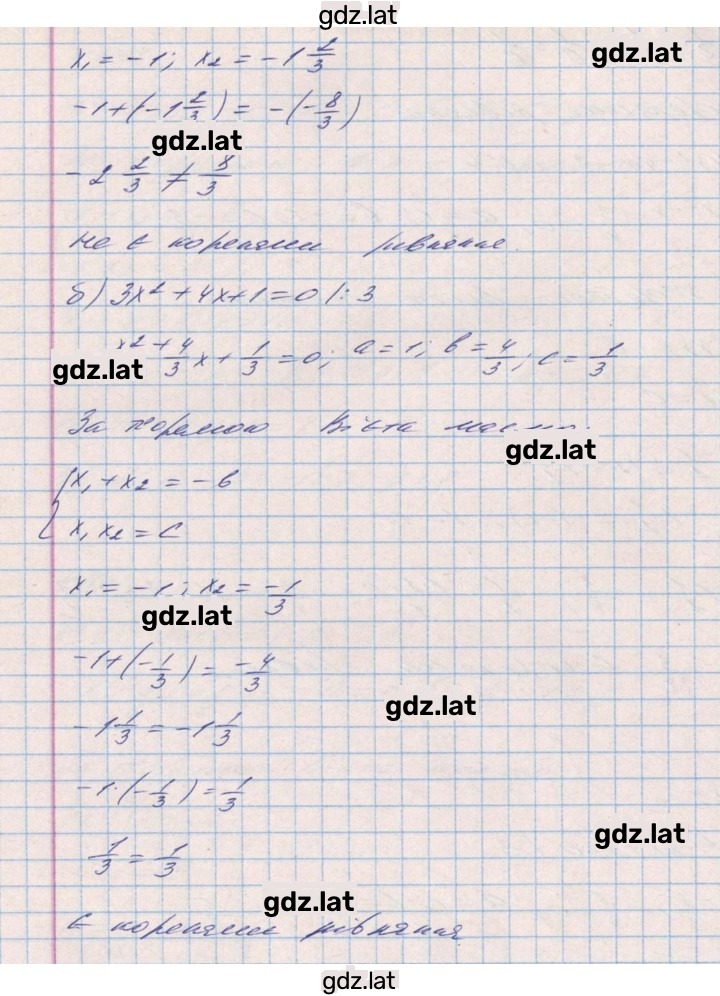 gdz.lat
x₁ = -1; x₂ = -1 2/3
gdz.lat
-1 + (-1 2/3) = -(-8/3)
gdz.lat
-2 2/3 ≠ 8/3
не є коренями рівняння.
б) 3x² + 4x + 1 = 0 /: 3
x² + 4/3 x + 1/3 = 0; a = 1; b = 4/3; c = 1/3
gdz.lat
За теоремою Вієта
gdz.lat
{ x₁ + x₂ = -b
x₁ x₂ = c
x₁ = -1; x₂ = -1/3
gdz.lat
-1 + (-1/3) = -4/3
gdz.lat
-1 1/3 = -1 1/3
-1 · (-1/3) = 1/3
gdz.lat
1/3 = 1/3
gdz.lat
є коренями рівняння
gdz.lat